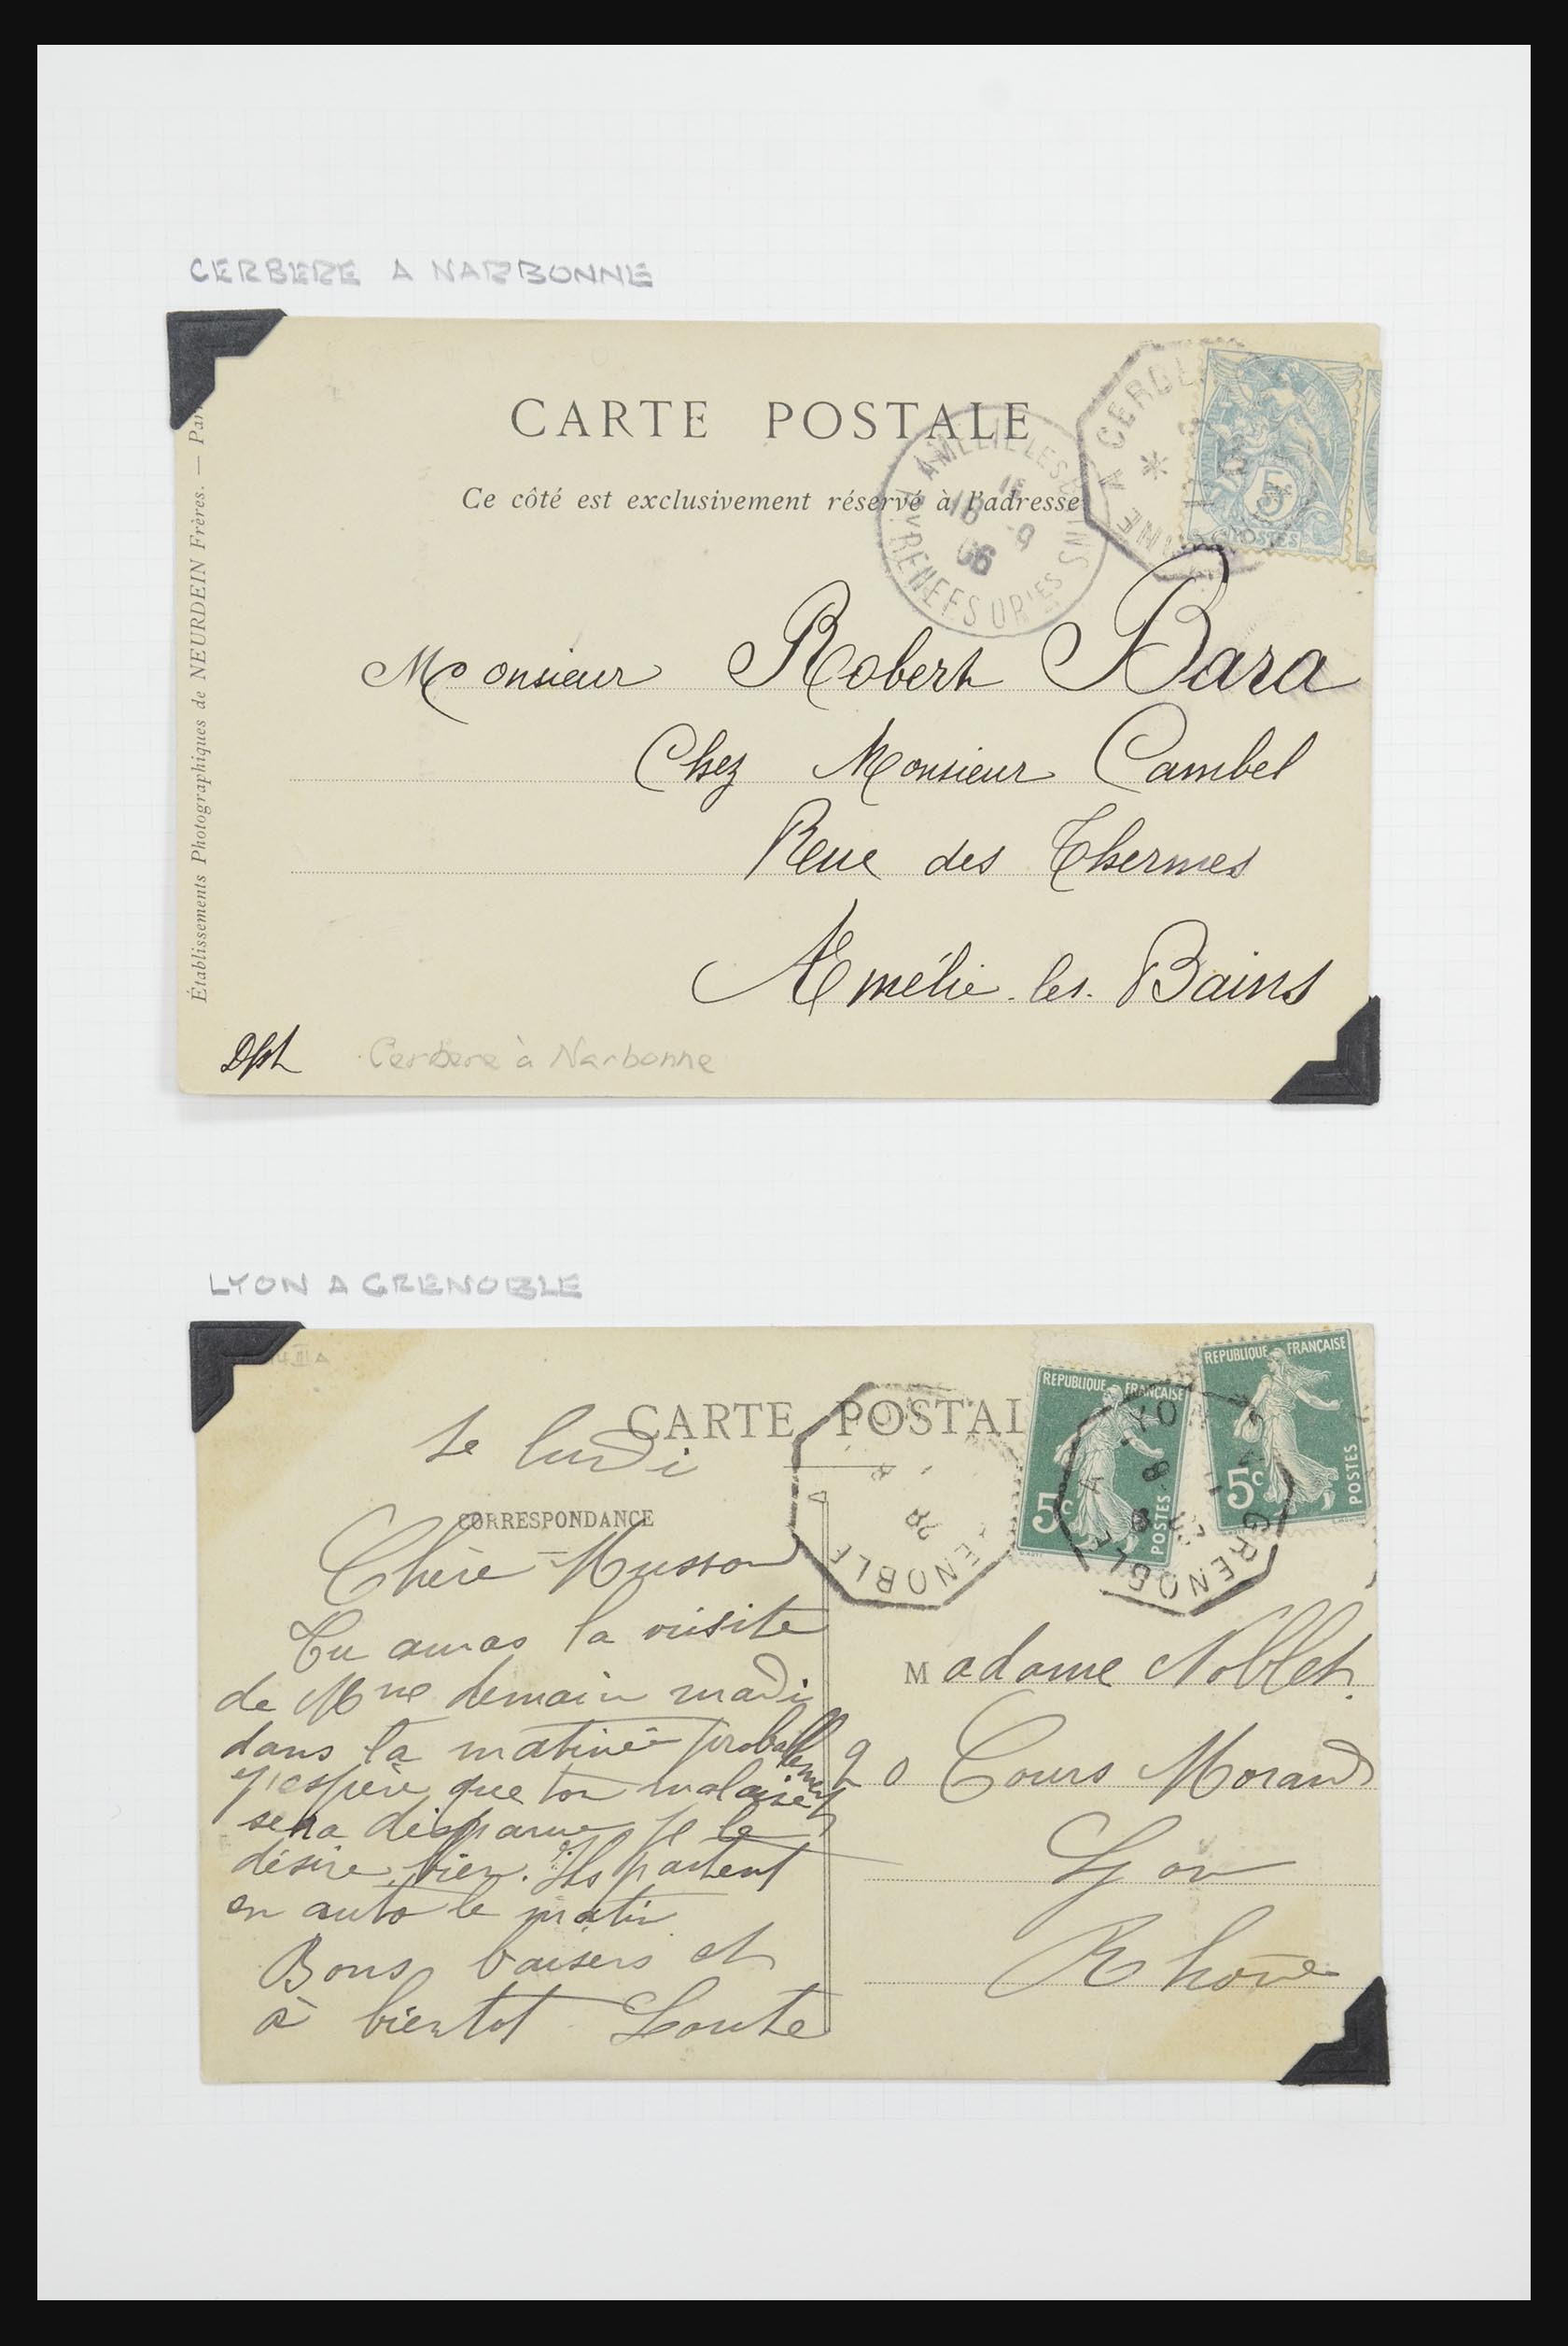 CERBERE A NARBONNE
CARTE POSTALE
Ce côté est exclusivement réservé à l'adresse
Établissements Photographiques de NEURDEIN Frères. — Par
AMÉLIE LES BAINS
16 -9
06
PYRENEES ORles
5c
POSTES
Monsieur Robert Bara
Chez Monsieur Cambel
Rue des Thermes
Amélie-les-Bains
Cerbere à Narbonne
LYON A GRENOBLE
CARTE POSTAL
CORRESPONDANCE
REPUBLIQUE FRANÇAISE
5c
POSTES
REPUBLIQUE FRANÇAISE
5c
POSTES
GRENOBLE A
Le lundi
Chère Musson
Tu auras la visite
de Mme demain mardi
dans la matinée probablement
j'espère que ton malaise
sera disparu je le
désire bien. Ils partent
en auto le matin
Bons baisers et
à bientot Loute
Madame Noblet.
20 Cours Morand
Lyon
Rhône